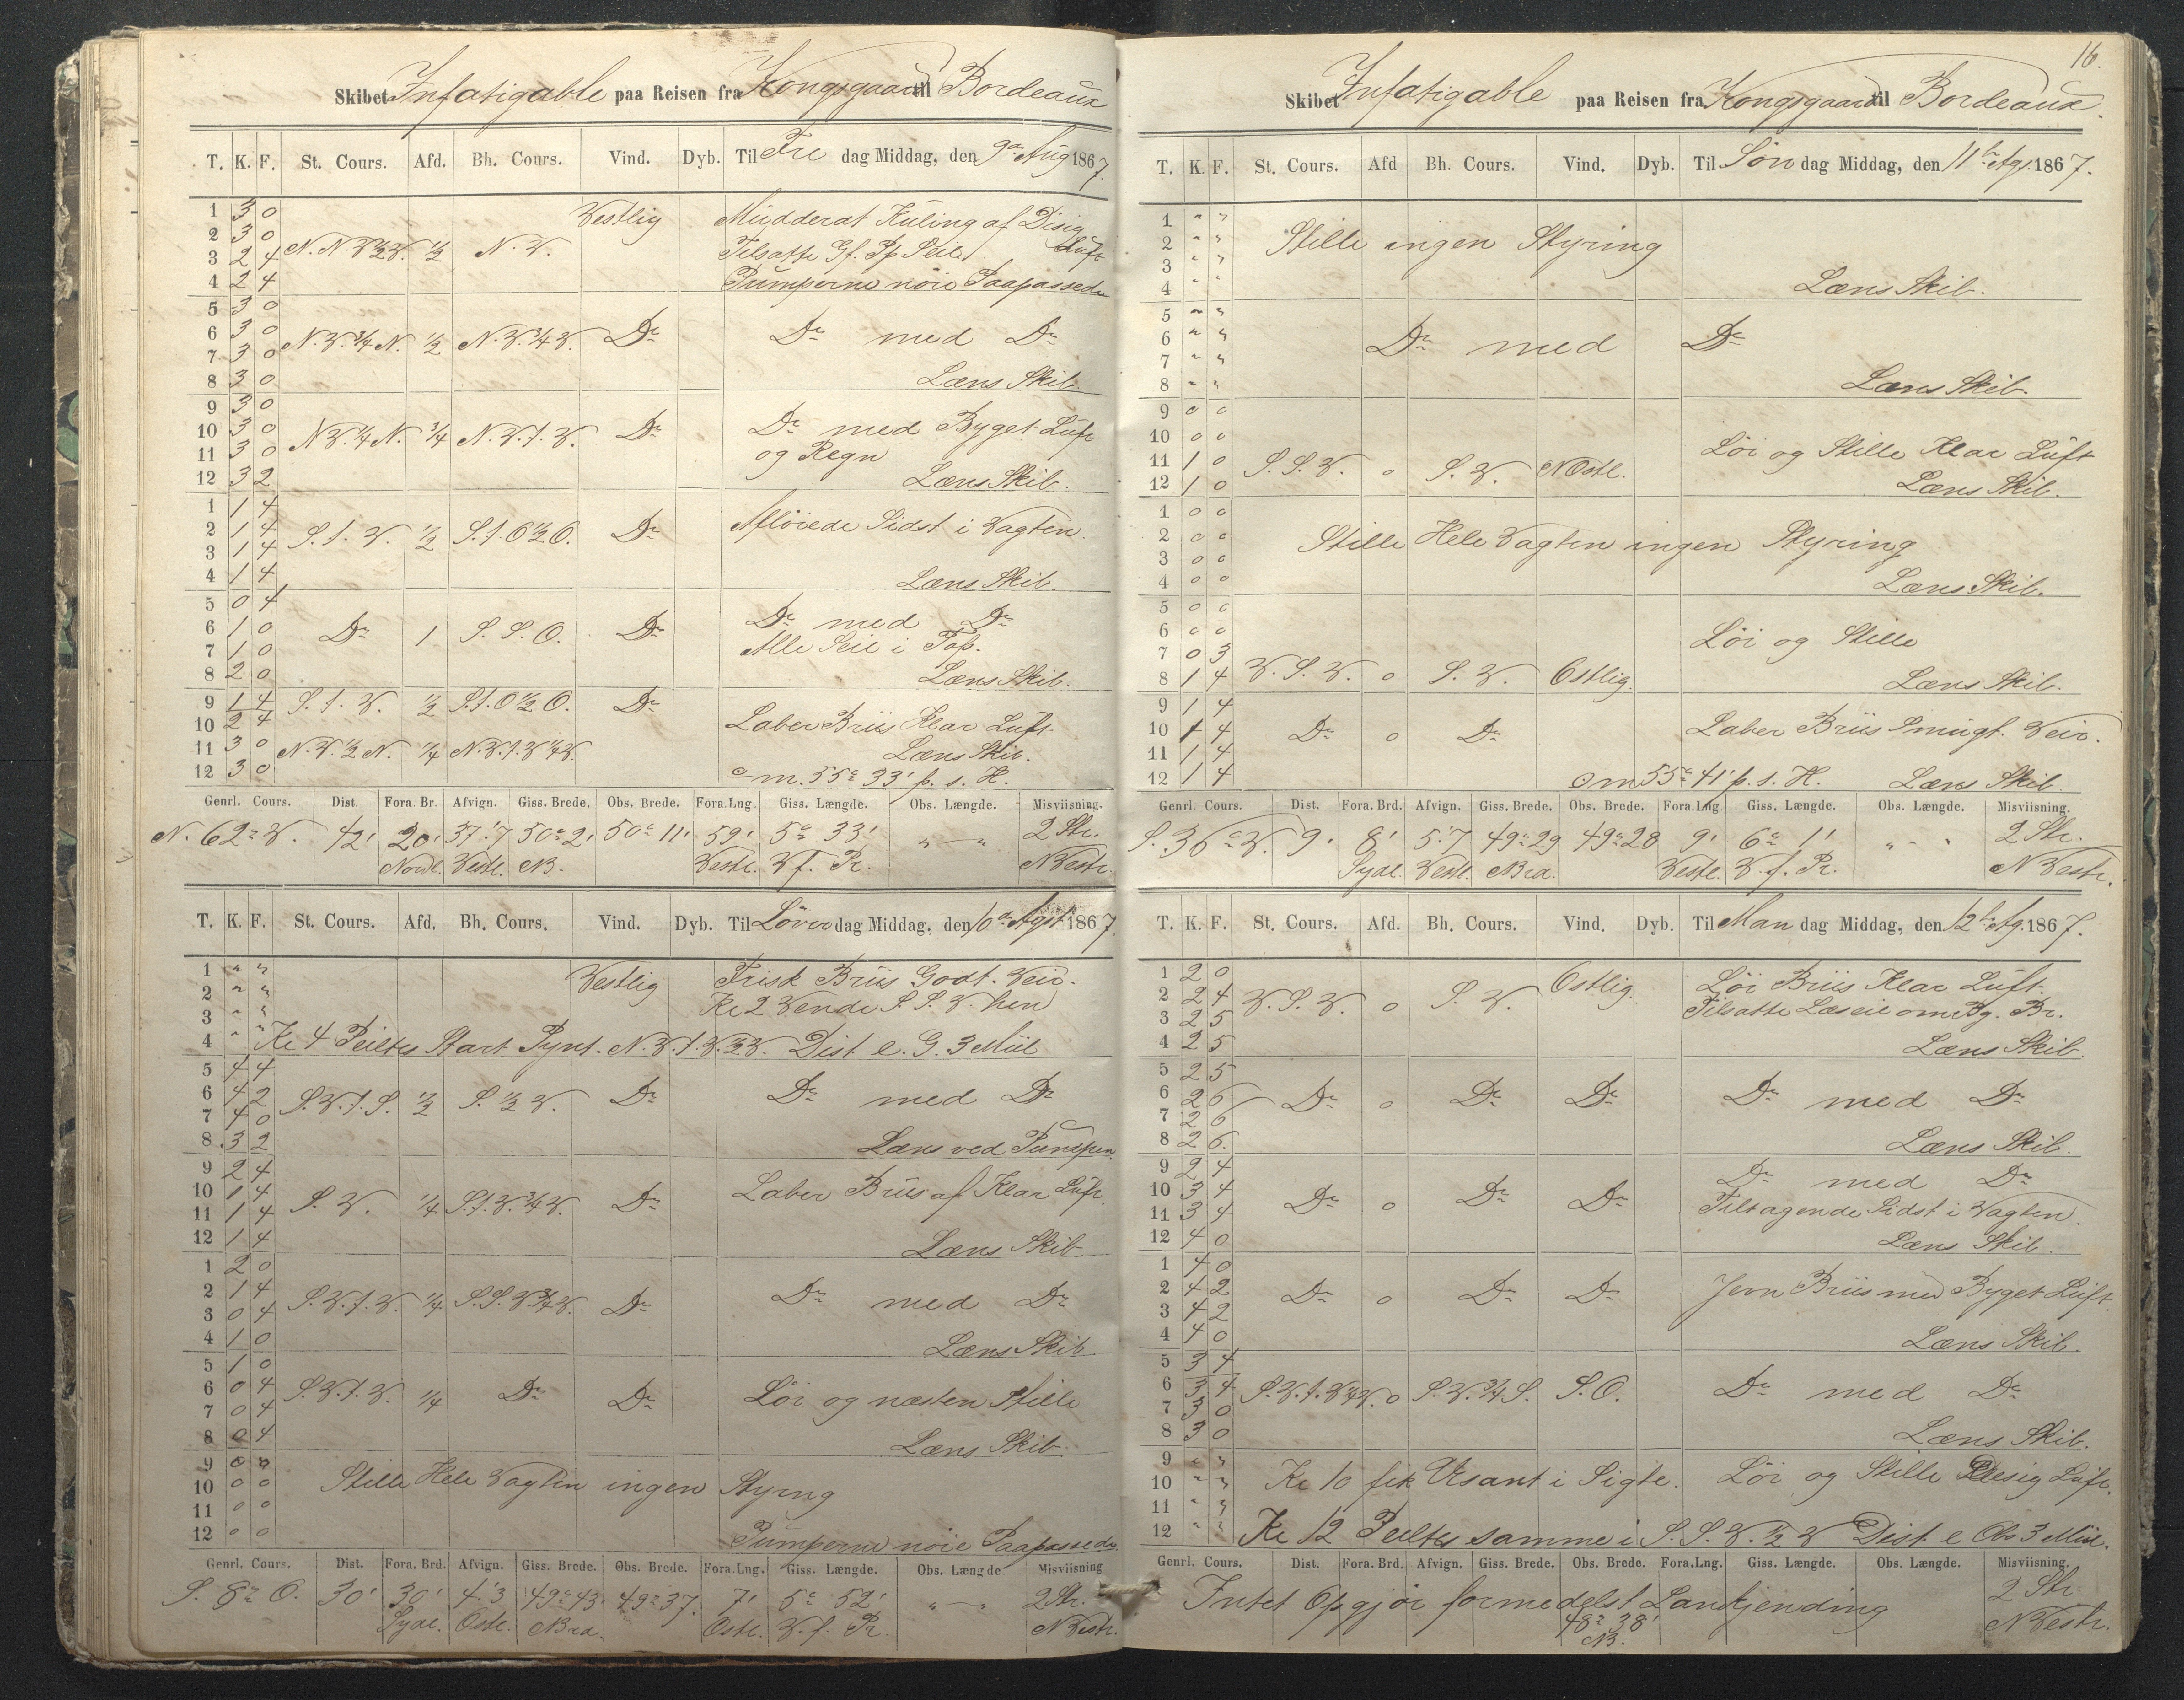 Skibet Infatigable paa Reisen fra Kongsgaard til Bordeaux
T. K. F. St. Cours. Afd. Bh. Cours. Vind. Dyb. Til Fre dag Middag, den 9de Aug 1867.
1 3 0 Vestlig Mudderat Kuling af Disig
2 3 0 Luft
3 2 4 N.N.V.½V. ½ N.V. Tilsatte Gf. Pp Seil
4 2 4 Pumperne nöie Paapassede
5 3 0
6 3 0 N.V.¾N. ½ N.V.¼V. Do Do med Do
7 3 0
8 3 0 Læns Skib.
9 3 0
10 3 0 N.V.¼N. ¾ N.V.t.V. Do Do med Byget Luft
11 3 0 og Regn
12 3 2 Læns Skib.
1 1 4
2 1 4 S.t.V. ½ S.t.O½O. Do Afløiede Sidst i Vagten.
3 1 4
4 1 4 Læns Skib.
5 0 4
6 1 0 Do 1 S.S.O. Do Do med Do
7 1 0 Alle Seil i Top.
8 2 0 Læns Skib.
9 1 4 S.t.V. ½ S.t.O½O. Do
10 2 4 Laber Briis Klar Luft
11 3 0 N.V.½N. ¼ N.V.t.V¼V. Læns Skib.
12 3 0 om. 55° 33' p. s. H.
Genrl. Cours. Dist. Fora. Br. Afvign. Giss. Brede. Obs. Brede. Fora.Lng. Giss. Længde. Obs. Længde. Misviisning.
N. 62° V. 42' 20' 37'.7 50° 2' 50° 11' 59' 5° 33' „ — „ 2 Str.
Nordl. Vestl. NB. Vestl. V f. Pr. N Vestr.
T. K. F. St. Cours. Afd. Bh. Cours. Vind. Dyb. Til Löver dag Middag, den 10de Agst 1867.
1 " " Vestlig Frisk Briis Godt. Veir.
2 " " Kl 2 Vende S.S.V. hen
3 " "
4 " " Kl 4 Peiltes Start Pynt. N.V.t.V.½V. Dist e. G. 3 Miil
5 4 4
6 4 2 S.V.t.S. ½ S.½V. Do Do med Do
7 4 0
8 3 2 Læns ved Pumpen.
9 2 4
10 1 4 Laber Briis af Klar Luft.
11 1 4 S.V. ¼ S.t.V.¾V. Do
12 1 4 Læns Skib
1 2 0
2 1 4 S.V.t.V. ¼ S.S.V.¾V. Do Do med Do
3 0 4
4 1 0 Læns Skib.
5 1 0
6 0 4 S.V.t.V. ¼ Do Do Löi og næsten Stille
7 0 4
8 0 4 Læns Skib.
9 0 0
10 0 0 Stille Hele Vagten ingen Styrng
11 0 0
12 0 0 Pumperne nöie Paapassede
Genrl. Cours. Dist. Fora. Brd. Afvign. Giss. Brede. Obs. Brede. Fora.Lng. Giss. Længde. Obs. Længde Misviisning
S. 8° O. 30' 30' 4'.3 49° 43' 49° 37' 7' 5° 52' „ — „ 2 Str.
Sydl. Ostl. Brd. Ostl. V. f. Pr. N Vestr.
16.
Skibet Infatigable paa Reisen fra Kongsgaard til Bordeaux.
T. K. F. St. Cours. Afd Bh. Cours. Vind. Dyb. Til Søn dag Middag, den 11te Ag. 1867.
1 " "
2 " " Stille ingen Styring
3 " "
4 " " Læns Skib.
5 " "
6 " " Do med Do
7 " "
8 " " Læns Skib.
9 0 0
10 0 0 Löi og Stille Klar Luft
11 1 0 S.S.V. 0 S.V. NOstl.
12 1 0 Læns Skib.
1 0 0
2 0 0 Stille Hele Vagten ingen Styring
3 0 0
4 0 0 Læns Skib.
5 0 0
6 0 0 Löi og Stille
7 0 3
8 1 4 V.S.V. 0 S.V. Ostlig. Læns Skib.
9 1 4
10 1 4 Do 0 Do Laber Briis Smugt. Veir.
11 1 4
12 1 4 om 55° 41' p. s. H. Læns Skib.
Genrl. Cours. Dist. Fora. Brd. Afvign. Giss. Brede. Obs. Brede. Fora.Lng Giss. Længde. Obs. Længde. Misviisning.
S. 36° V. 9' 8' 5'.7 49° 29 49° 28 9' 6° 1' „ - „ 2 Str.
Sydl. Vestl. Brd. Vestl. V. f. Pr. N Vestr.
T. K. F. St. Cours. Afd. Bh. Cours. Vind. Dyb. Til Man dag Middag, den 12te Ag. 1867.
1 2 0 Ostlig. Löi Briis Klar Luft.
2 2 4 V.S.V. 0 S.V. Tilsatte Læseil om Bg. Br.
3 2 5
4 2 5 Læns Skib.
5 2 5
6 2 6 Do 0 Do Do Do med Do
7 2 6
8 2 6. Læns Skib.
9 2 4 Do med Do
10 3 4 Do 0 Do Do
11 3 4 Tiltagende Sidst i Vagten.
12 4 0 Læns Skib.
1 4 0
2 4 2 Do 0 Do Do Jevn Briis med Byget Luft.
3 4 2
4 4 0 Læns Skib.
5 3 4
6 3 4 S.V.t.V¼V. 0 S.V.¾S. S.O. Do med Do
7 3 0
8 3 0 Læns Skib.
9 " "
10 " " Kl 10 fik Usant i Sigte. Löi og Stille Disig Luft.
11 " "
12 " " Kl 12 Peiltes samme i S.S.V.½V Dist e Obs 3 Miil.
Genrl. Cours. Dist. Fora. Brd. Afvign. Giss. Brede. Obs. Brede. Fora.Lng. Giss. Længde. Obs. Længde. Misviisning.
Intet Opgjör formedelst Landkjending 2 Str
48° 38' N Vestr.
NB.